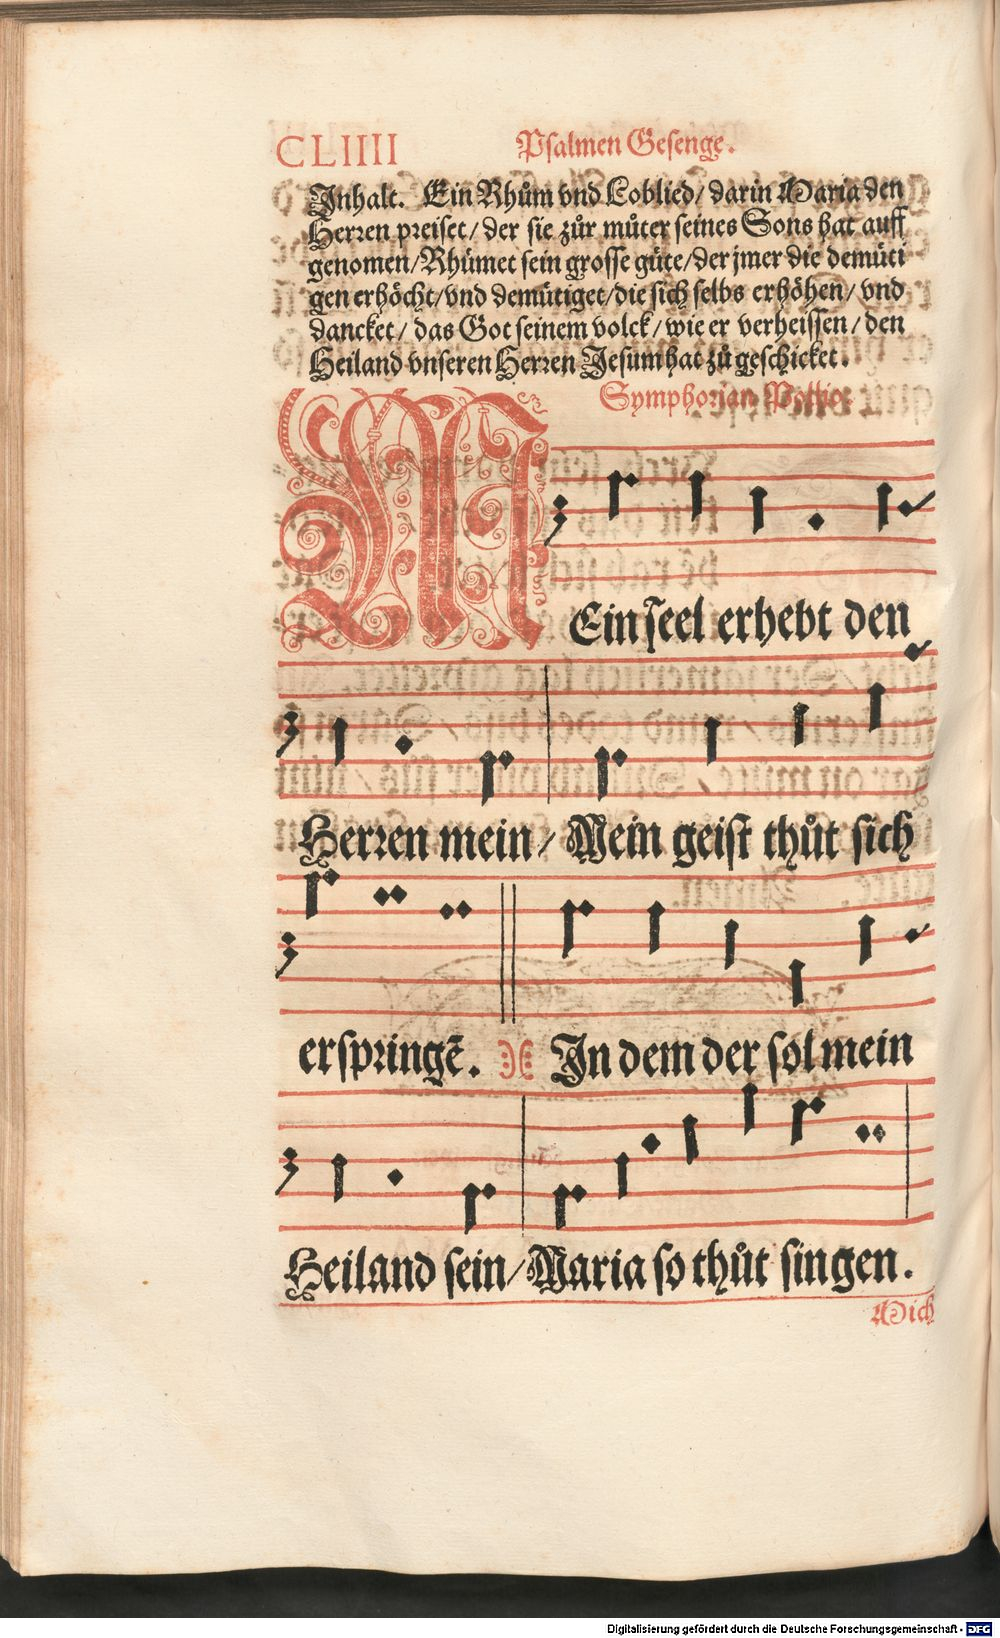 CLIIII Psalmen Gesenge.
Inhalt. Ein Rhům vnd Loblied/ darin Maria den
Herren preiset/ der sie zůr můter seines Sons hat auff
genomen/ Rhümet sein grosse güte/ der jmer die demüti
gen erhöcht/ vnd demütiget/ die sich selbs erhöhen/ vnd
dancket/ das Got seinem volck/ wie er verheissen/ den
Heiland vnseren Herren Jesum hat zů geschicket.
Symphorian. Pollio.
MEin seel erhebt den
Herren mein/ Mein geist thůt sich
erspringē. In dem der sol mein
Heiland sein/ Maria so thůt singen.
Mich
Digitalisierung gefördert durch die Deutsche Forschungsgemeinschaft - DFG